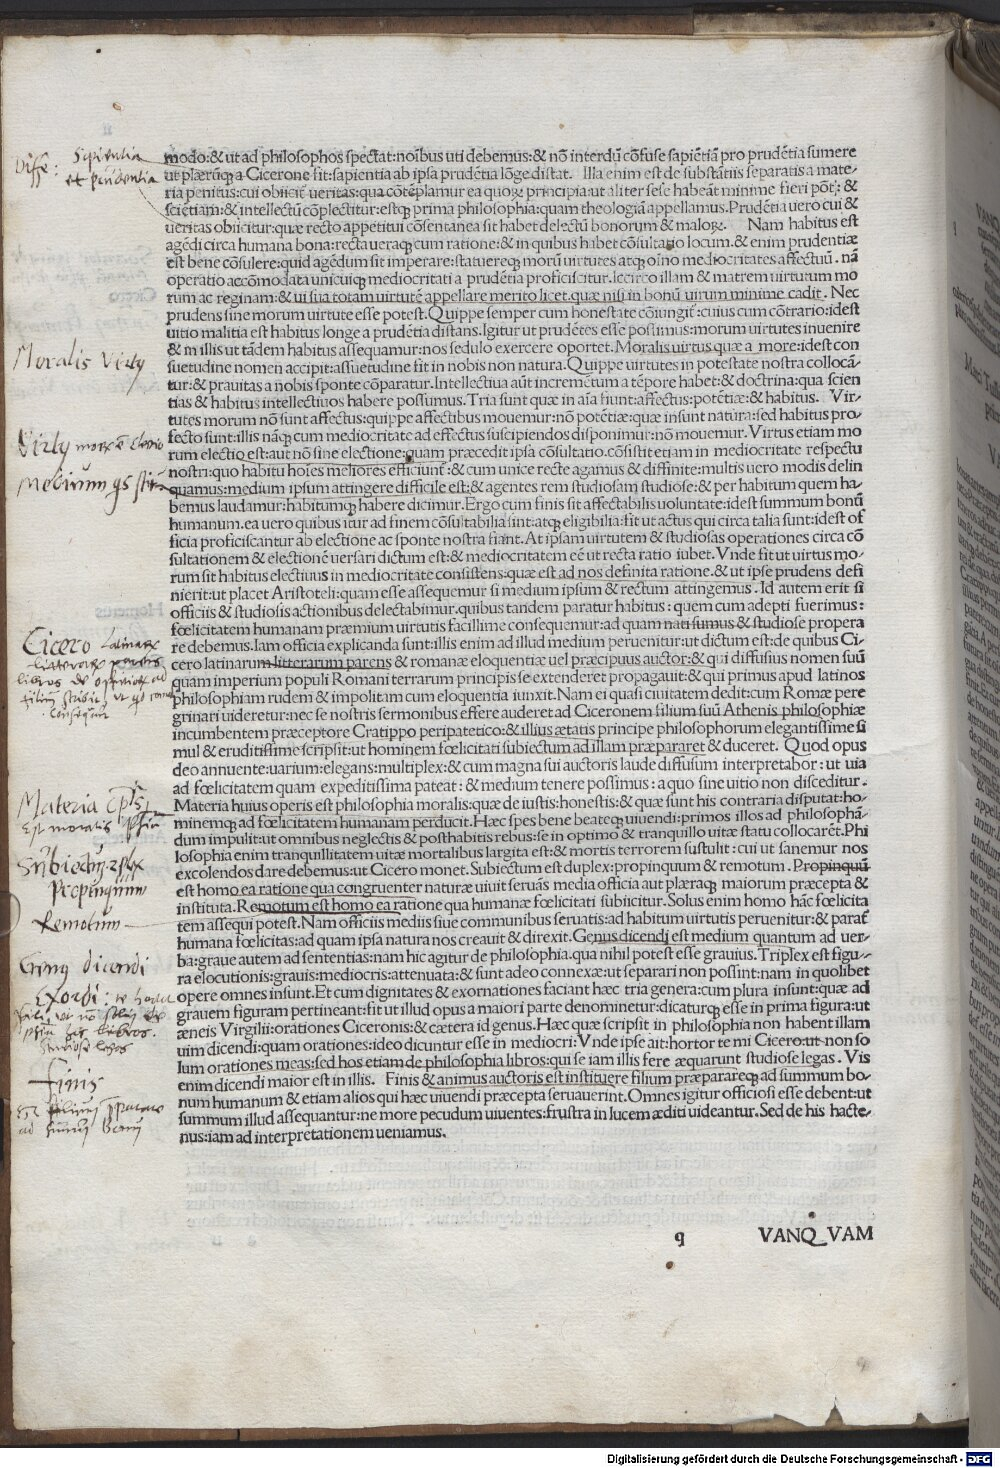 modo:& ut ad philosophos spectat:noībus uti debemus:& nō interdū cōfuse sapiētiā pro prudētia sumere
ut plærūq; a Cicerone fit:sapientia ab ipsa prudētia lōge distat. Illa enim est de substātiis separatis a mate-
ria penitus:cui obiicit͛ ueritas:qua cōtēplamur ea quoꝝ principia:ut aliter sese habeāt minime fieri pōt͛: &
sciētiam:& intellectū cōplectitur:estq; prima philosophia:quam theologiā appellamus. Prudētia uero cui &
ueritas obiicitur:quæ recto appetitui cōsentanea sit habet delectū bonorum & maloꝝ. Nam habitus est
agēdi circa humana bona:recta ueraq; cum ratione:& in quibus habet cōsultatio locum.& enim prudentiæ
est bene cōsulere:quid agēdum sit imperare:statuereq; morū uirtutes atq; oīno mediocritates affectuū. nā
operatio accōmodata unicuiq; mediocritati a prudētia proficiscitur. Iccirco illam & matrem uirtutum mo
rum ac reginam:& ui sua totam uirtutē appellare merito licet.quæ nisi in bonū uirum minime cadit. Nec
prudens sine morum uirtute esse potest. Quippe semper cum honestate cōiungit͛:cuius cum cōtrario:idest
uitio malitia est habitus longe a prudētia distans. Igitur ut prudētes esse possimus:morum uirtutes inuenire
& in illis ut tādem habitus assequamur:nos sedulo exercere oportet. Moralis uirtus quæ a more:idest con
suetudine nomen accipit:assuetudine fit in nobis non natura. Quippe uirtutes in potestate nostra collocā-
tur:& prauitas a nobis sponte cōparatur. Intellectiua aūt incremētum a tēpore habet:& doctrina:qua scien
tias & habitus intellectiuos habere possumus. Tria sunt quæ in aīa fiunt:affectus:potētiæ:& habitus. Vir-
tutes morum nō sunt affectus:quippe affectibus mouemur:nō potētiæ:quæ insunt natura:sed habitus pro-
fecto sunt:illis nāq; cum mediocritate ad effectus suscipiendos disponimur:nō mouemur. Virtus etiam mo
rum electio est:aut nō sine electione:quam præcedit ipsa cōsultatio.cōsistit etiam in mediocritate respectu
nostri:quo habitu hoīes meliores efficiunt͛:& cum unice recte agamus & diffinite:multis uero modis delin
quamus:medium ipsum attingere difficile est:& agentes rem studiosam studiose:& per habitum quem ha-
bemus laudamur:habitumq; habere dicimur. Ergo cum finis sit affectabilis uoluntate:idest summum bonū
humanum.ea uero quibus itur ad finem cōsultabilia sint:atq; eligibilia:fit ut actus qui circa talia sunt:idest of
ficia proficiscantur ab electione ac sponte nostra fiant. At ipsam uirtutem & studiosas operationes circa cō
sultationem & electionē uersari dictum est:& mediocritatem eē ut recta ratio iubet. Vnde fit ut uirtus mo-
rum sit habitus electiuus in mediocritate consistens:quæ est ad nos definita ratione.& ut ipse prudens defi
nierit:ut placet Aristoteli:quam esse assequemur si medium ipsum & rectum attingemus. Id autem erit si
officiis & studiosis actionibus delectabimur.quibus tandem paratur habitus: quem cum adepti fuerimus:
fœlicitatem humanam præmium uirtutis facillime consequemur:ad quam nati sumus & studiose propera
re debemus. Iam officia explicanda sunt:illis enim ad illud medium peruenitur:ut dictum est:de quibus Ci-
cero latinarum litterarum parens & romanæ eloquentiæ uel præcipuus auctor:& qui diffusius nomen suū
quam imperium populi Romani terrarum principis se extenderet propagauit:& qui primus apud latinos
philosophiam rudem & impolitam cum eloquentia iunxit. Nam ei quasi ciuitatem dedit:cum Romæ pere
grinari uideretur:nec se nostris sermonibus effere auderet ad Ciceronem filium suū Athenis philosophiæ
incumbentem præceptore Cratippo peripatetico:& illius ætatis principe philosophorum elegantissime si
mul & eruditissime scripsit:ut hominem fœlicitati subiectum ad illam præpararet & duceret. Quod opus
deo annuente:uarium:elegans:multiplex:& cum magna sui auctoris laude diffusum interpretabor: ut uia
ad fœlicitatem quam expeditissima pateat: & medium tenere possimus: a quo sine uitio non disceditur.
Materia huius operis est philosophia moralis:quæ de iustis:honestis:& quæ sunt his contraria disputat:ho-
minemq; ad fœlicitatem humanam perducit. Hæc spes bene beateq; uiuendi:primos illos ad philosophā-
dum impulit:ut omnibus neglectis & posthabitis rebus:se in optimo & tranquillo uitæ statu collocarēt. Phi
losophia enim tranquillitatem uitæ mortalibus largita est:& mortis terrorem sustulit: cui ut sanemur nos
excolendos dare debemus:ut Cicero monet. Subiectum est duplex:propinquum & remotum. Propinquū
est homo ea ratione qua congruenter naturæ uiuit seruās media officia aut plæraq; maiorum præcepta &
instituta. Remotum est homo ea ratione qua humanæ fœlicitati subiicitur. Solus enim homo hāc fœlicita
tem assequi potest. Nam officiis mediis siue communibus seruatis:ad habitum uirtutis peruenitur:& parat͛
humana fœlicitas:ad quam ipsa natura nos creauit & direxit. Genus dicendi est medium quantum ad uer-
ba:graue autem ad sententias:nam hic agitur de philosophia.qua nihil potest esse grauius. Triplex est figu-
ra elocutionis:grauis:mediocris:attenuata:& sunt adeo connexæ:ut separari non possint:nam in quolibet
opere omnes insunt. Et cum dignitates & exornationes faciant hæc tria genera:cum plura insunt:quæ ad
grauem figuram pertineant:fit ut illud opus a maiori parte denominetur:dicaturq; esse in prima figura:ut
æneis Virgilii:orationes Ciceronis:& cætera id genus. Hæc quæ scripsit in philosophia non habent illam
uim dicendi:quam orationes:ideo dicuntur esse in mediocri: Vnde ipse ait:hortor te mi Cicero:ut non so
lum orationes meas:sed hos etiam de philosophia libros:qui se iam illis fere æquarunt studiose legas. Vis
enim dicendi maior est in illis. Finis & animus auctoris est instituere filium præparareq; ad summum bo-
num humanum & etiam alios qui hæc uiuendi præcepta seruauerint. Omnes igitur officiosi esse debent:ut
summum illud assequantur:ne more pecudum uiuentes:frustra in lucem æditi uideantur. Sed de his hacte-
nus:iam ad interpretationem ueniamus.
q VANQVAM
Diffe: Sapientia
et prudentia
Moralis Virtꝰ
Materia
Propinquum
Remotum
Genꝰ dicendi
Finis
Digitalisierung gefördert durch die Deutsche Forschungsgemeinschaft - DFG